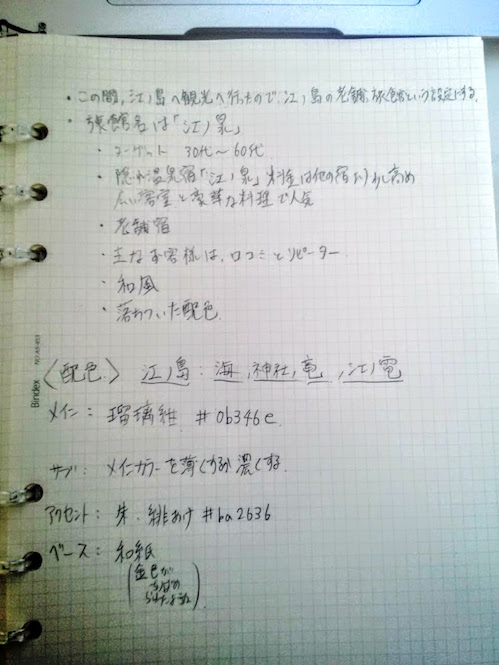 ・この間、江ノ島へ観光へ行ったので、江ノ島の老舗旅館という設定にする。
・旅館名は「江ノ泉」
・ターゲット 30代〜60代
・隠れ温泉宿「江ノ泉」料金は他の宿より少し高め
広い客室と豪華な料理で人気
・老舗宿
・主なお客様は、口コミとリピーター.
・和風
・落ちついた配色.
〈配色.〉 江ノ島:海,神社,竜,江ノ電
メイン: 瑠璃紺 #0b346e
サブ: メインカラーを薄くするか濃くする.
アクセント: 朱.緋あけ #ba2636
ベース: 和紙
(金色が
ちりばめ
られたような)
Bindex NO.AR-453